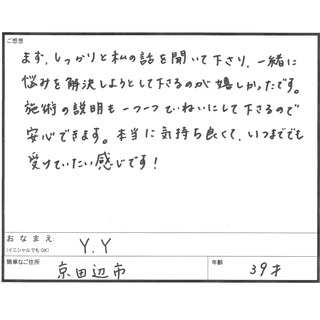 ご感想
まず、しっかりと私の話を聞いて下さり、一緒に
悩みを解決しようとして下さるのが嬉しかったです。
施術の説明も一つ一つていねいにして下さるので
安心できます。本当に気持ち良くて、いつまででも
受けていたい感じです!
おなまえ
(イニシャルでもOK)
Y.Y
簡単なご住所
京田辺市
年齢
39才